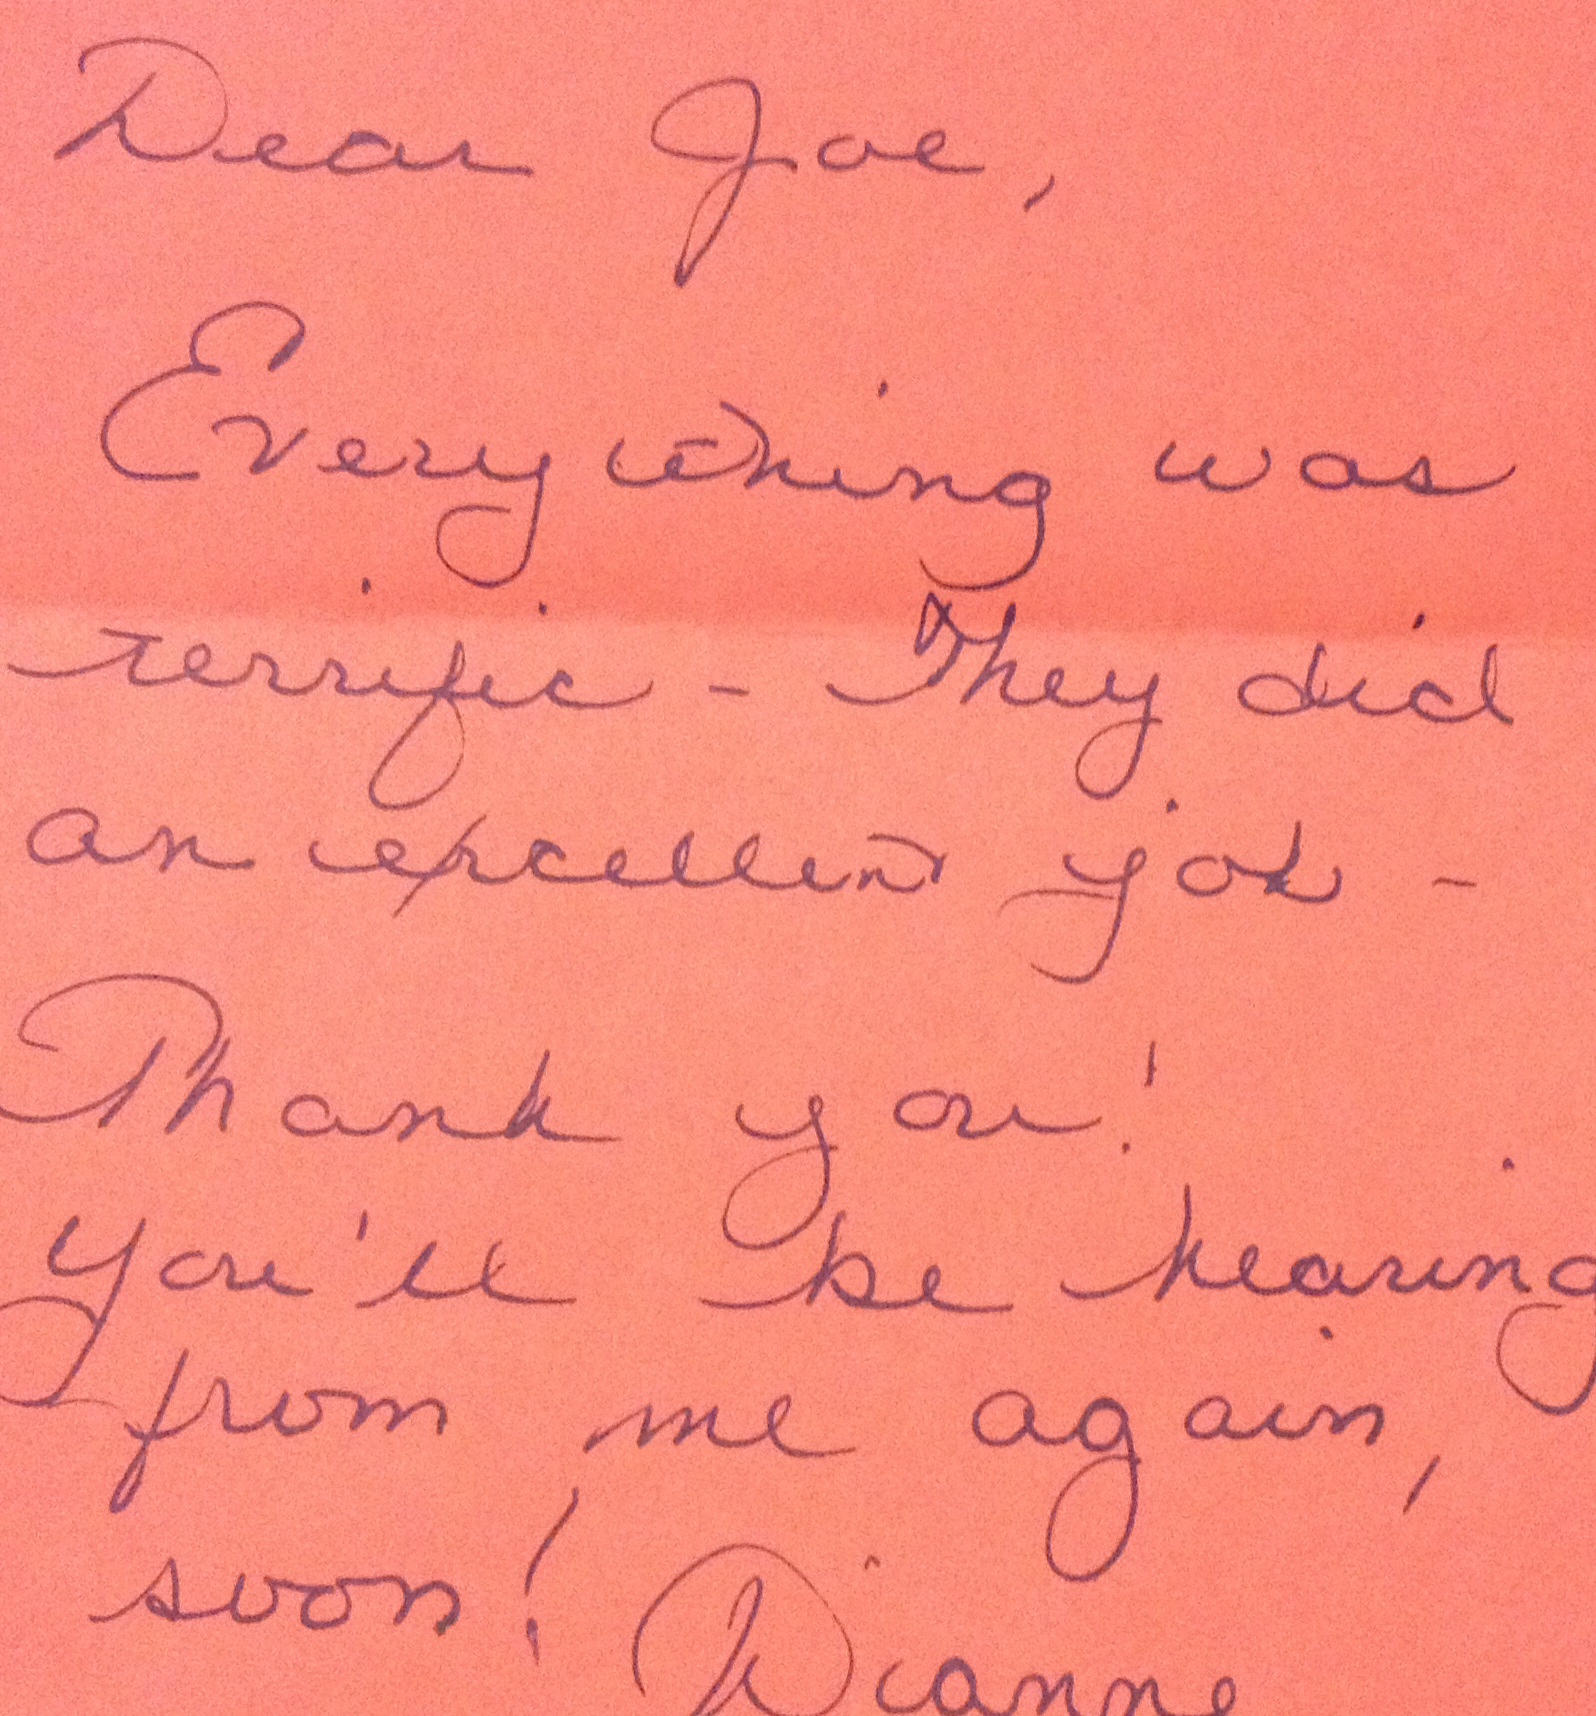 Dear Joe,
Everything was
terrific - They did
an excellent job -
Thank you!
You'll be hearing
from me again,
soon! Dianne